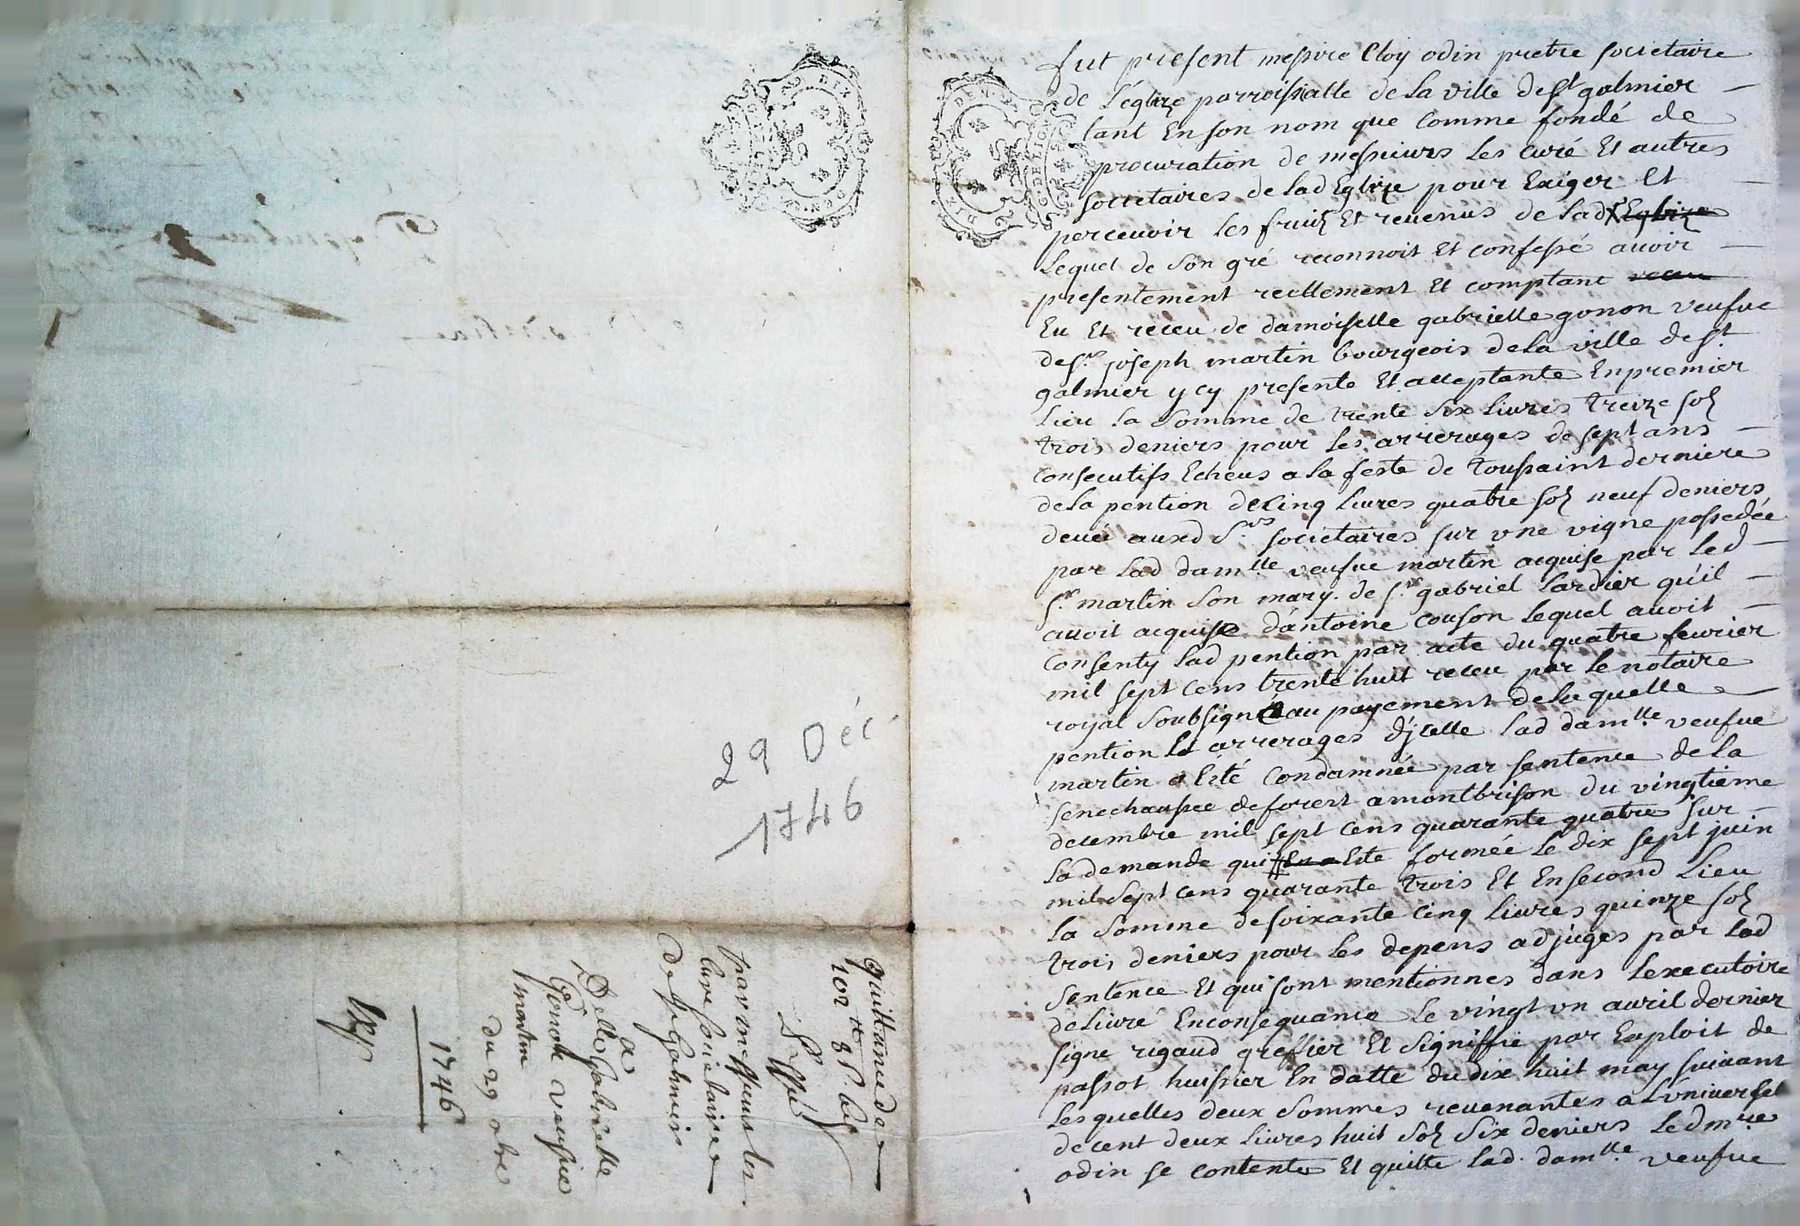 fut present messire Eloy odin pretre societaire
de L'églize parroissialle de La ville de St galmier
tant En son nom que Comme fondé de
procuration de messieurs Les curé Et autres
societaires de Lad Eglize pour Exiger Et
percevoir Les fruitz Et revenus de Lad Eglize
Lequel de son gré reconnoit Et confessé avoir
presentement reellement Et comptant receu
Eu Et receu de damoiselle gabrielle gonon veufue
de Sr joseph martin bourgeois de la ville de St
galmier y cy presente Et acceptante En premier
Lieu La Somme de trente six Livres treize solz
trois deniers pour Les arrerages de sept ans
consecutifs Echeus a la feste de toussaint derniere
de la pention de Cinq Livres quatre solz neuf deniers
deüe auxd Srs societaires sur vne vigne possedée
par Lad damlle veufue martin acquise par Led
Sr martin son mary de Sr gabriel Lardier qu'il
avoit acquise d'antoine couson Lequel avoit
consenty Lad pention par acte du quatre fevrier
mil sept cens trente huit receu par Le notaire
royal Soubsigné au payement de la quelle
pention Et arrerages d'jcelle Lad damlle veufue
martin a Eté Condamnée par sentence de la
senechaussee de forest a montbrison du vingtieme
decembre mil sept cens quarante quatre sur
La demande qui En a Eté formée Le dix sept juin
mil sept cens quarante trois Et En second Lieu
La Somme de soixante cinq Livres quinze solz
trois deniers pour Les depens adjugés par Lad
Sentence Et qui sont mentionnes dans L'executoire
delivré En consequance Le vingt vn avril dernier
signé rigaud greffier Et signiffié par Exploit de
passot huissier En datte du dix huit may suivant
Lesquelles deux Sommes revenantes a L'vniversel
de cent deux Livres huit solz six deniers Led mre
odin se contente Et quitte Lad damlle veufue
29 Déc.
1746
quittance de
102 tt 8 s. 6 d
par messieurs les
curé societaires
de St Galmier
a
Delle Gabrielle
Gonon veufue
martin
du 29 xbre
1746